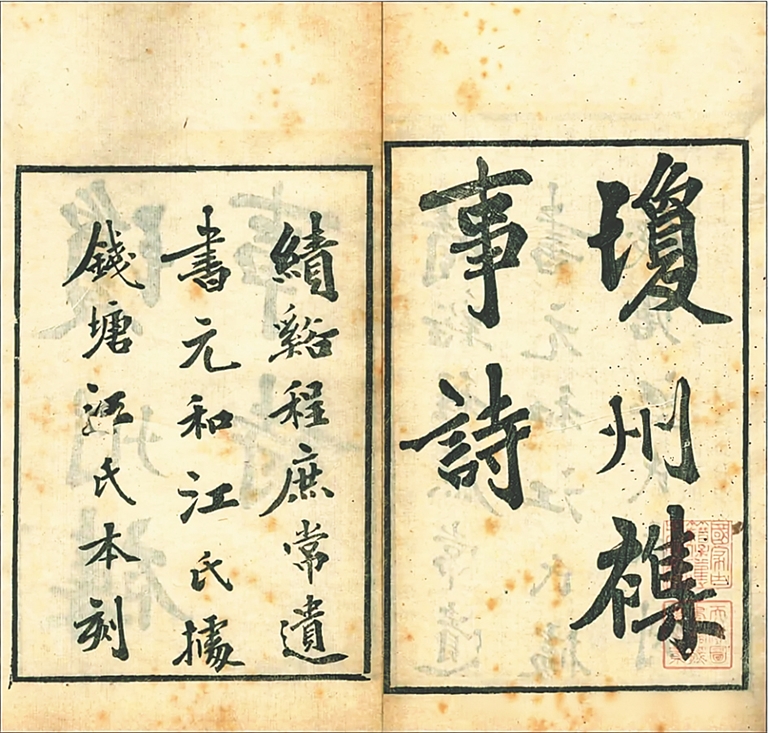 瓊州襍
事詩
績谿程庶常遺
書元和江氏據
錢塘江氏本刻